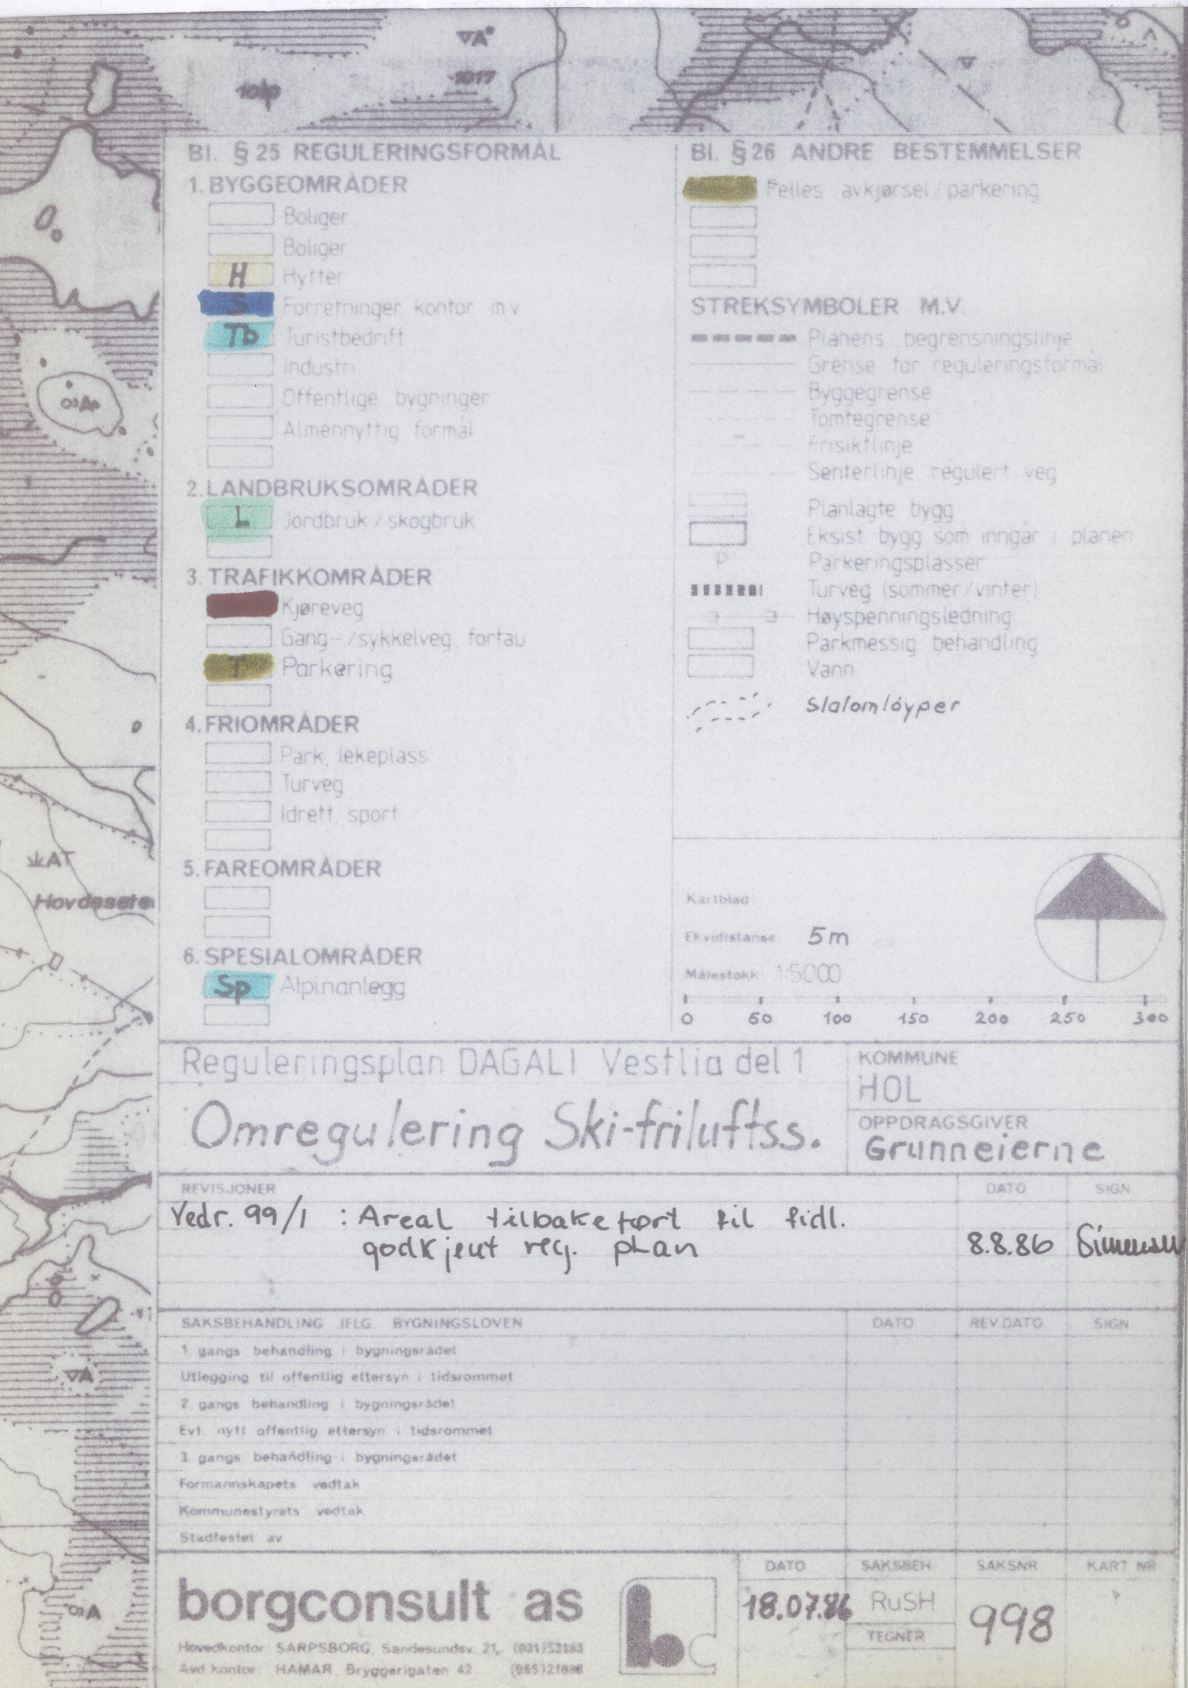 ▽A
1017
▽
Bl. § 25 REGULERINGSFORMÅL
1. BYGGEOMRÅDER
Boliger
Boliger
H Hytter
S Forretninger, kontor m.v
Tb Turistbedrift
Industri
Offentlige bygninger
Almennyttig formål
2. LANDBRUKSOMRÅDER
L Jordbruk / skogbruk
3. TRAFIKKOMRÅDER
Kjøreveg
Gang-/sykkelveg, fortau
T Parkering
4. FRIOMRÅDER
Park, lekeplass
Turveg
Idrett, sport
5. FAREOMRÅDER
6. SPESIALOMRÅDER
Sp Alpinanlegg
Bl. § 26 ANDRE BESTEMMELSER
Felles avkjørsel / parkering
STREKSYMBOLER M.V.
Planens begrensningslinje
Grense for reguleringsformål
Byggegrense
Tomtegrense
Frisiktlinje
Senterlinje regulert veg
Planlagte bygg
Eksist bygg som inngår i planen
P Parkeringsplasser
Turveg (sommer/vinter)
Høyspenningsledning
Parkmessig behandling
Vann
Slalomløyper
AT
Hovdesete
Kartblad:
Ekvidistanse: 5m
Målestokk: 1:5000
0 50 100 150 200 250 300
Reguleringsplan DAGALI Vestlia del 1
Omregulering Ski-friluftss.
KOMMUNE
HOL
OPPDRAGSGIVER
Grunneierne
REVISJONER DATO SIGN
Vedr. 99/1 : Areal tilbakeført til tidl.
godkjent reg. plan 8.8.86 Simensen
SAKSBEHANDLING IFLG. BYGNINGSLOVEN DATO REV.DATO SIGN
1. gangs behandling i bygningsrådet
Utlegging til offentlig ettersyn i tidsrommet
2. gangs behandling i bygningsrådet
Evt. nytt offentlig ettersyn i tidsrommet
3. gangs behandling i bygningsrådet
Formannskapets vedtak
Kommunestyrets vedtak
Stadfestet av
▽A
borgconsult as
bc
Hovedkontor: SARPSBORG, Sandesundsv. 21, (031)53183
Avd kontor: HAMAR, Bryggerigaten 42
DATO SAKSBEH. SAKSNR KART NR
18.07.86 RuSH 998
TEGNER